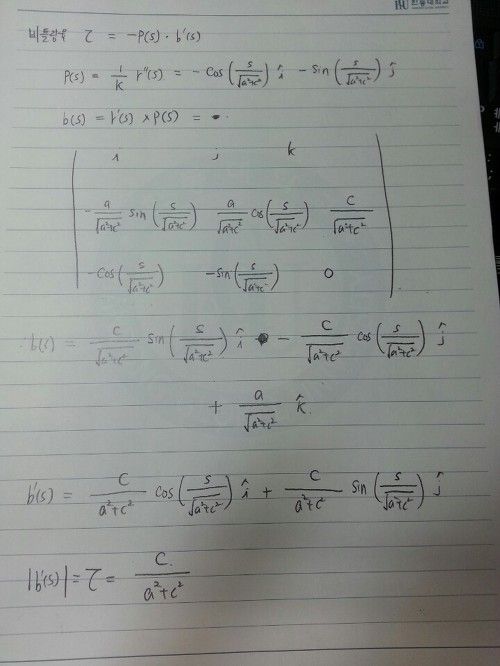 한동대학교
비틀림율 τ = -P(s) · b'(s)
P(s) = 1/k r''(s) = -cos(s/√(a²+c²)) î - sin(s/√(a²+c²)) ĵ
b(s) = r'(s) × P(s) =
| i j k |
| -a/√(a²+c²) sin(s/√(a²+c²)) a/√(a²+c²) cos(s/√(a²+c²)) c/√(a²+c²) |
| -cos(s/√(a²+c²)) -sin(s/√(a²+c²)) 0 |
∴ b(s) = c/√(a²+c²) sin(s/√(a²+c²)) î - c/√(a²+c²) cos(s/√(a²+c²)) ĵ
+ a/√(a²+c²) k̂.
b'(s) = c/(a²+c²) cos(s/√(a²+c²)) î + c/(a²+c²) sin(s/√(a²+c²)) ĵ
|b'(s)| = τ = c/(a²+c²)